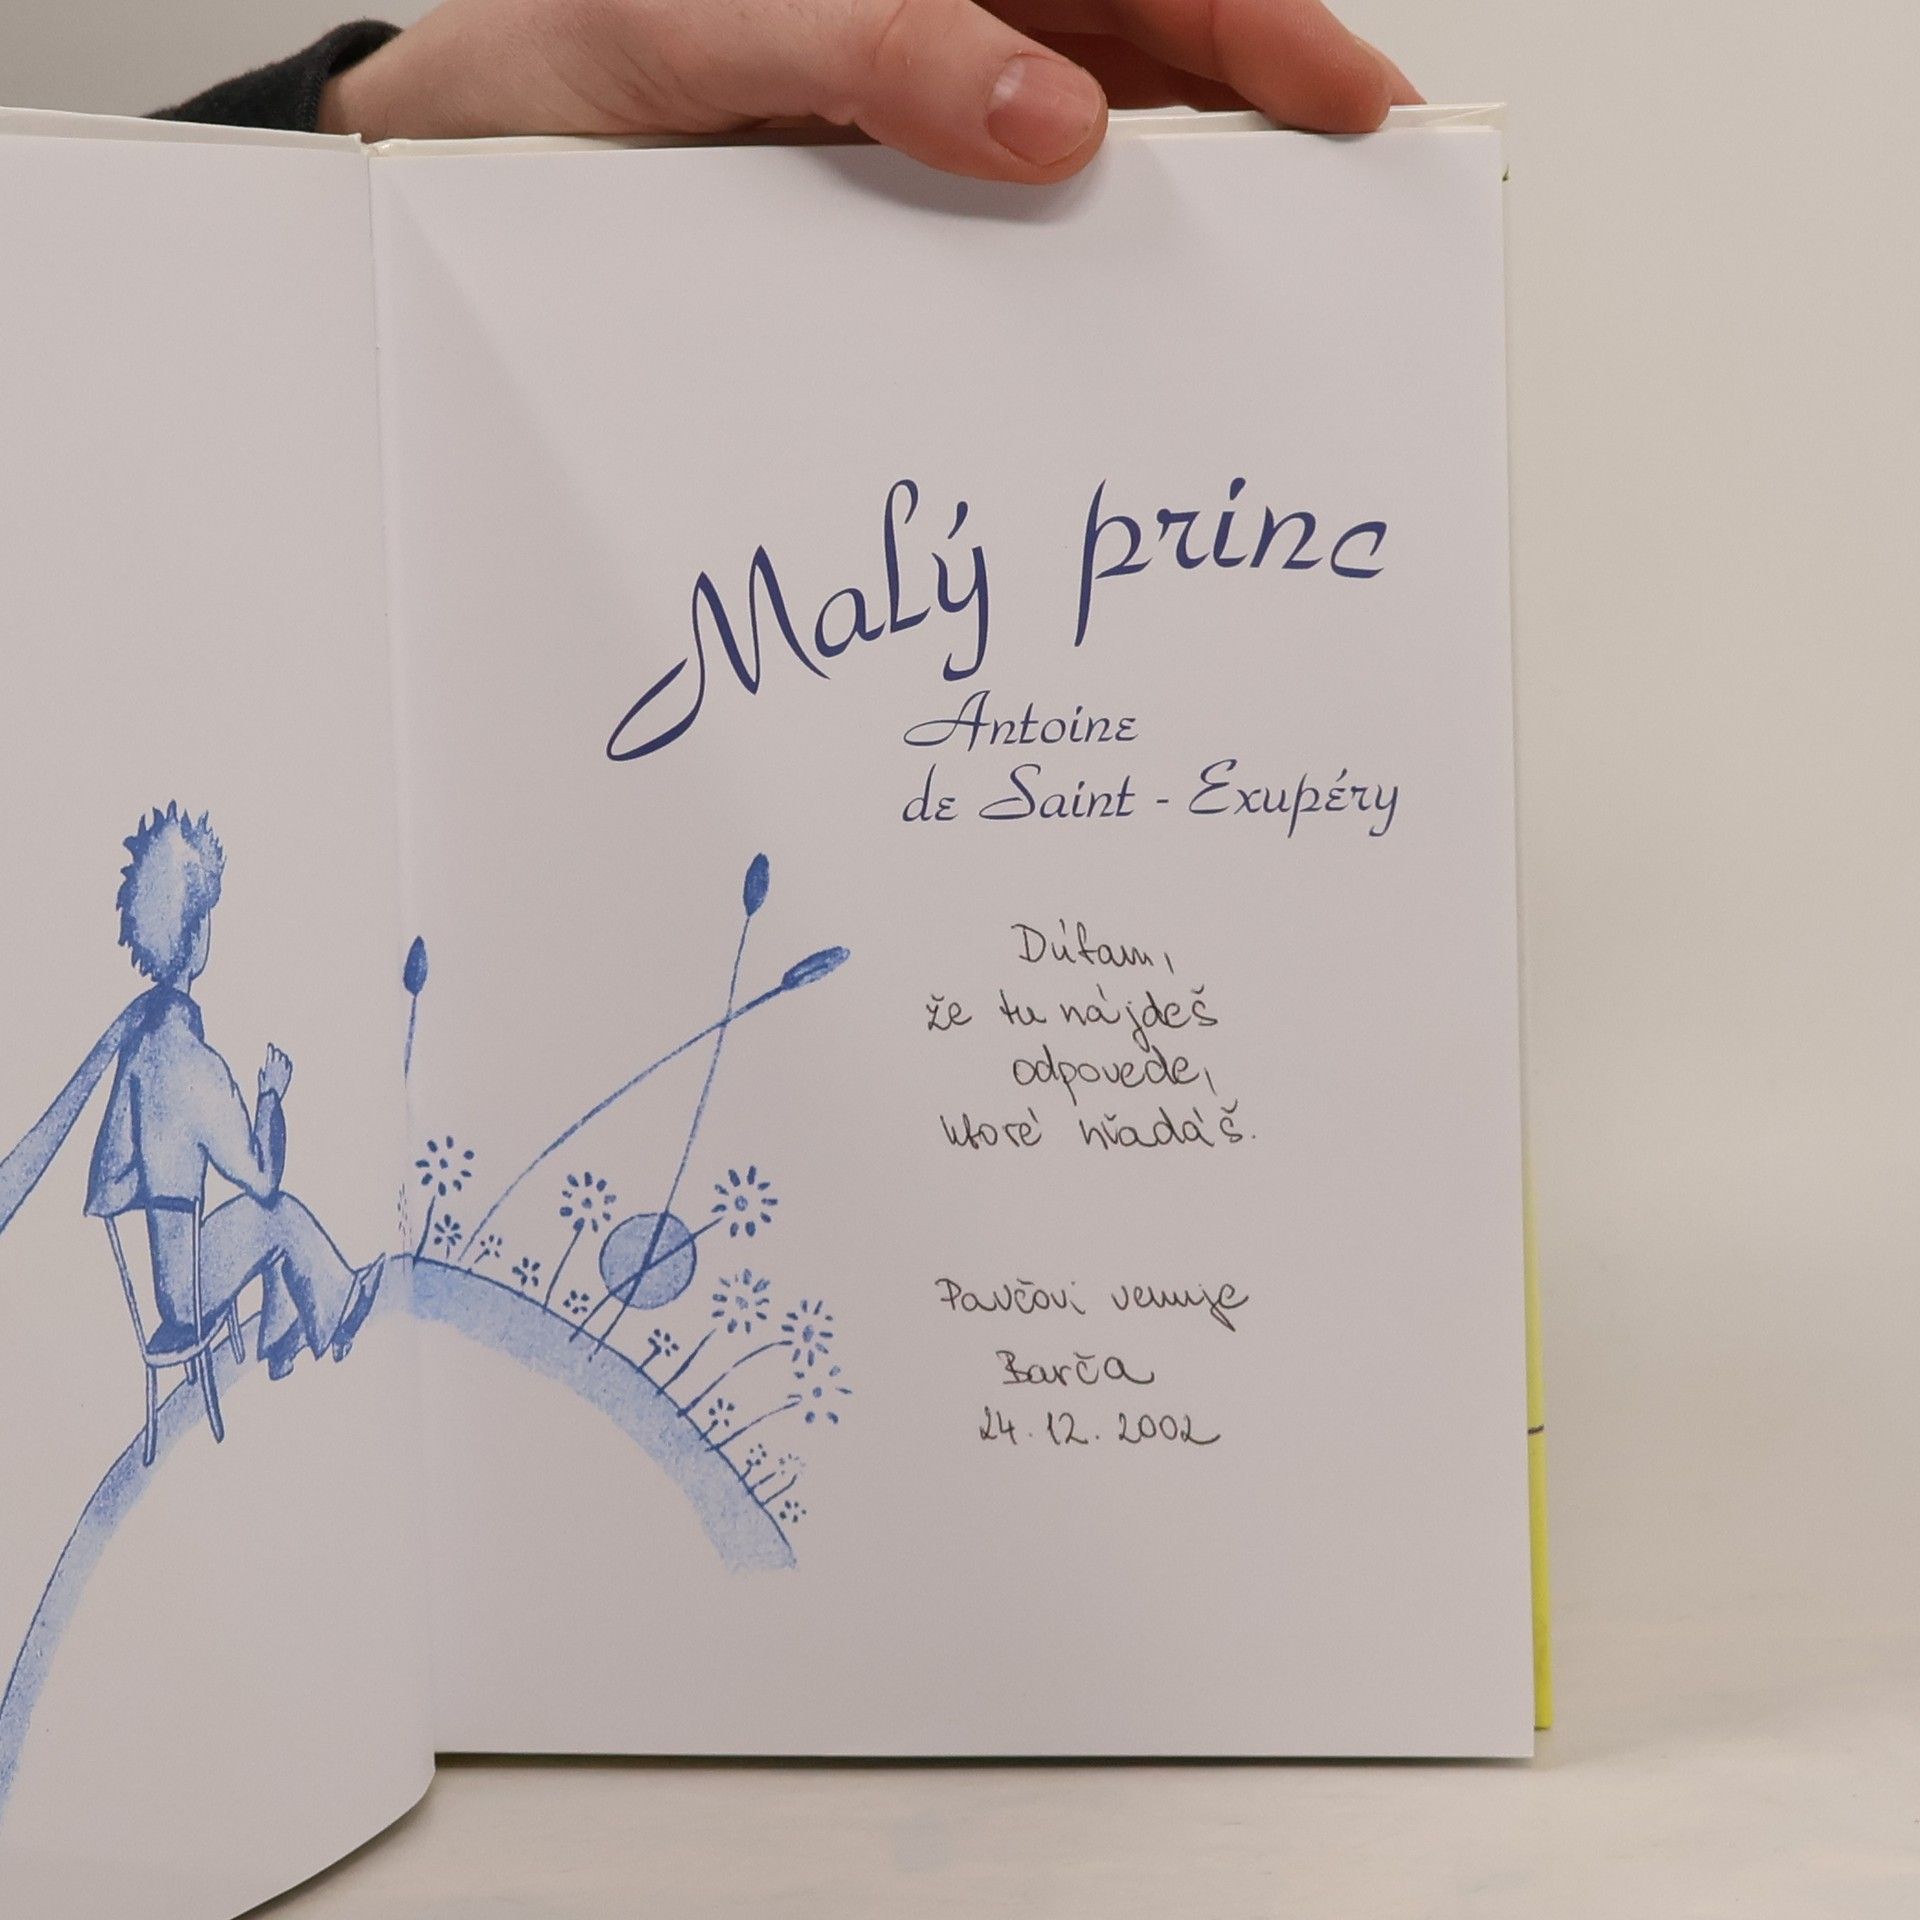 Malý princ
Antoine
de Saint - Exupéry
Dúfam,
že tu nájdeš
odpovede,
ktoré hľadáš.
Pavčovi venuje
Barča
24.12.2002